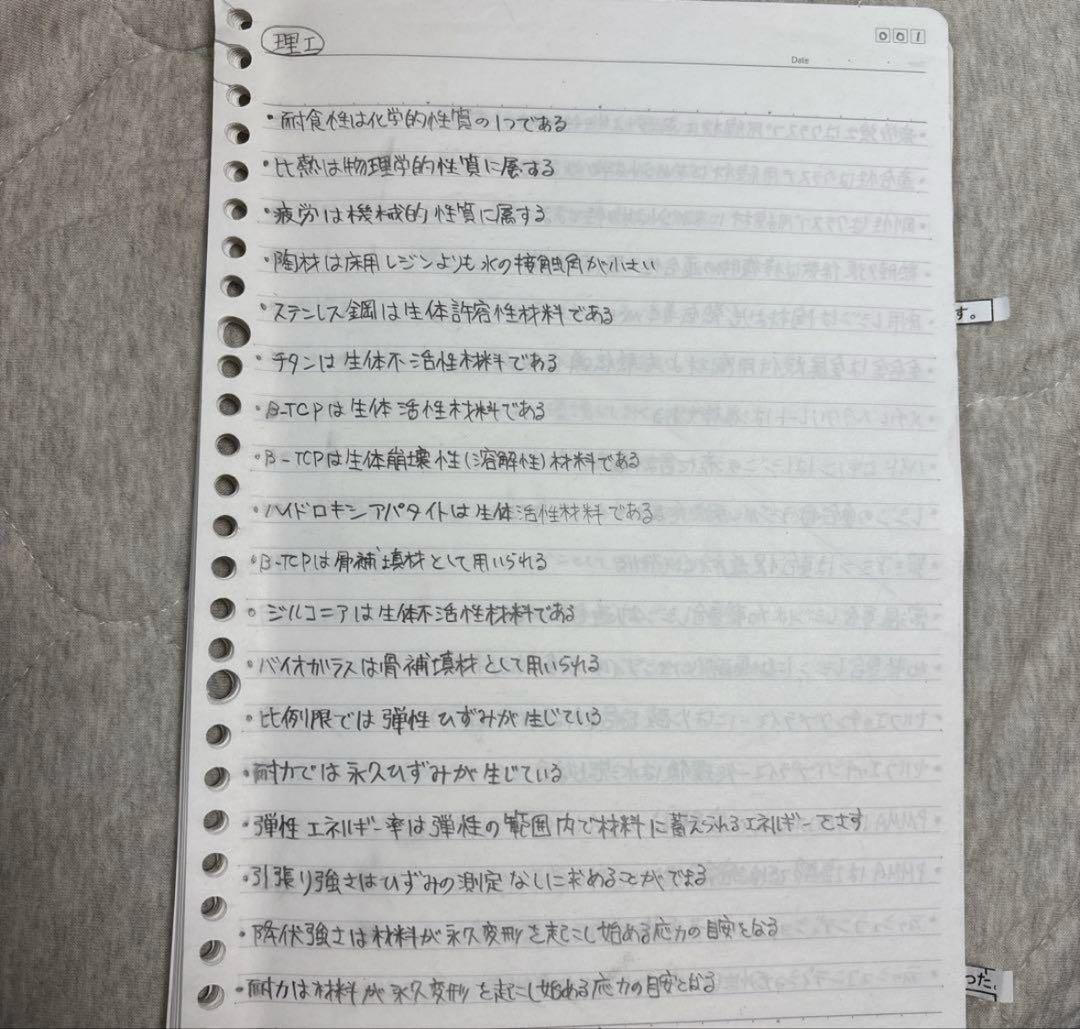 理工
001
Date
・耐食性は化学的性質の1つである
・比熱は物理学的性質に属する
・疲労は機械的性質に属する
・陶材は床用レジンよりも水の接触角が小さい
・ステンレス鋼は生体許容性材料である
す。
・チタンは生体不活性材料である
・β-TCPは生体活性材料である
・β-TCPは生体崩壊性(溶解性)材料である
・ハイドロキシアパタイトは生体活性材料である
・β-TCPは骨補填材として用いられる
・ジルコニアは生体不活性材料である
・バイオガラスは骨補填材として用いられる
・比例限では弾性ひずみが生じている
・耐力では永久ひずみが生じている
・弾性エネルギー率は弾性の範囲内で材料に蓄えられるエネルギーをさす
・引張り強さはひずみの測定なしに求めることができる
・降伏強さは材料が永久変形を起こし始める応力の目安となる
った。
・耐力は材料が永久変形を起こし始める応力の目安となる